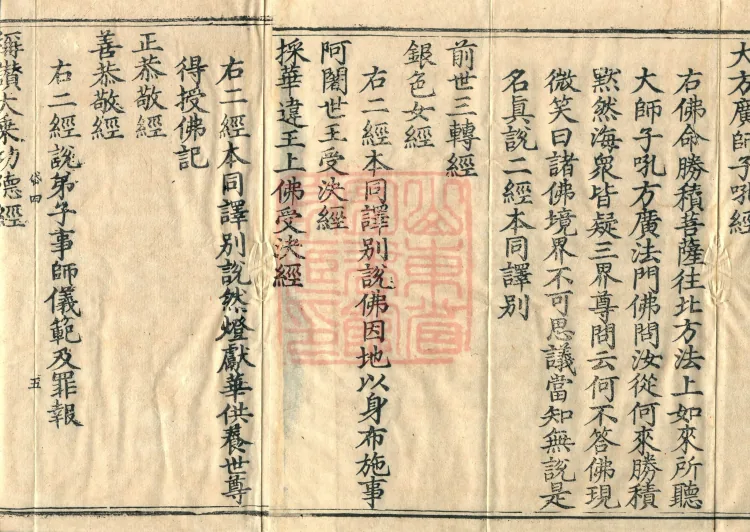 大方廣師子吼經
右佛命勝積菩薩往北方法上如來所聽
大師子吼方廣法門佛問汝從何來勝積
黙然海衆皆疑三界尊問云何不答佛現
微笑曰諸佛境界不可思議當知無說是
名眞說二經本同譯別
前世三轉經
銀色女經
右二經本同譯別說佛因地以身布施事
阿闍世王受決經
採華違王上佛受決經
右二經本同譯別說然燈獻華供養世尊
得授佛記
正恭敬經
善恭敬經
右二經說弟子事師儀範及罪報
稱讃大乘功德經
四
五